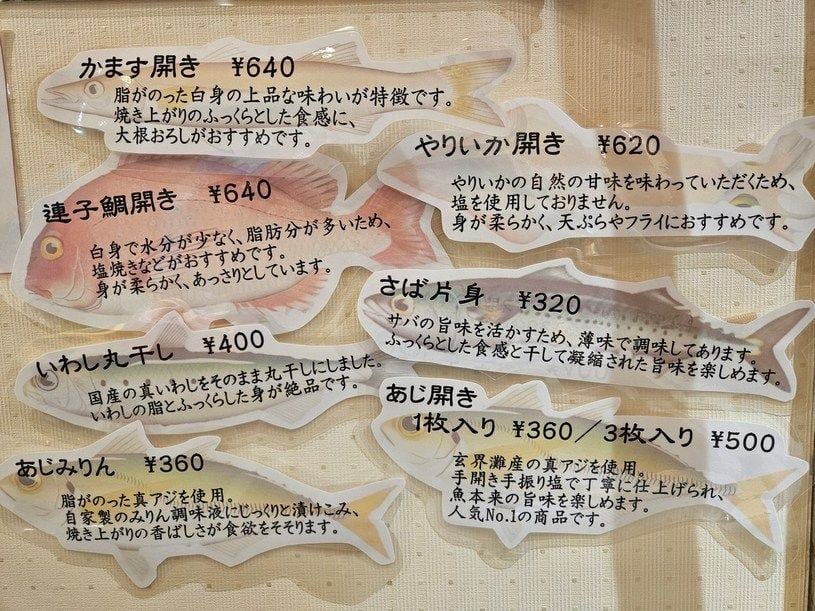 かます開き ¥640
脂がのった白身の上品な味わいが特徴です。
焼き上がりのふっくらとした食感に、
大根おろしがおすすめです。
やりいか開き ¥620
やりいかの自然の甘味を味わっていただくため、
塩を使用しておりません。
身が柔らかく、天ぷらやフライにおすすめです。
連子鯛開き ¥640
白身で水分が少なく、脂肪分が多いため、
塩焼きなどがおすすめです。
身が柔らかく、あっさりとしています。
さば片身 ¥320
サバの旨味を活かすため、薄味で調味してあります。
ふっくらとした食感と干して凝縮された旨味を楽しめます。
いわし丸干し ¥400
国産の真いわしをそのまま丸干しにしました。
いわしの脂とふっくらした身が絶品です。
あじ開き
1枚入り ¥360/3枚入り ¥500
玄界灘産の真アジを使用。
手開き手振り塩で丁寧に仕上げられ、
魚本来の旨味を楽しめます。
人気No.1の商品です。
あじみりん ¥360
脂がのった真アジを使用。
自家製のみりん調味液にじっくりと漬けこみ、
焼き上がりの香ばしさが食欲をそそります。